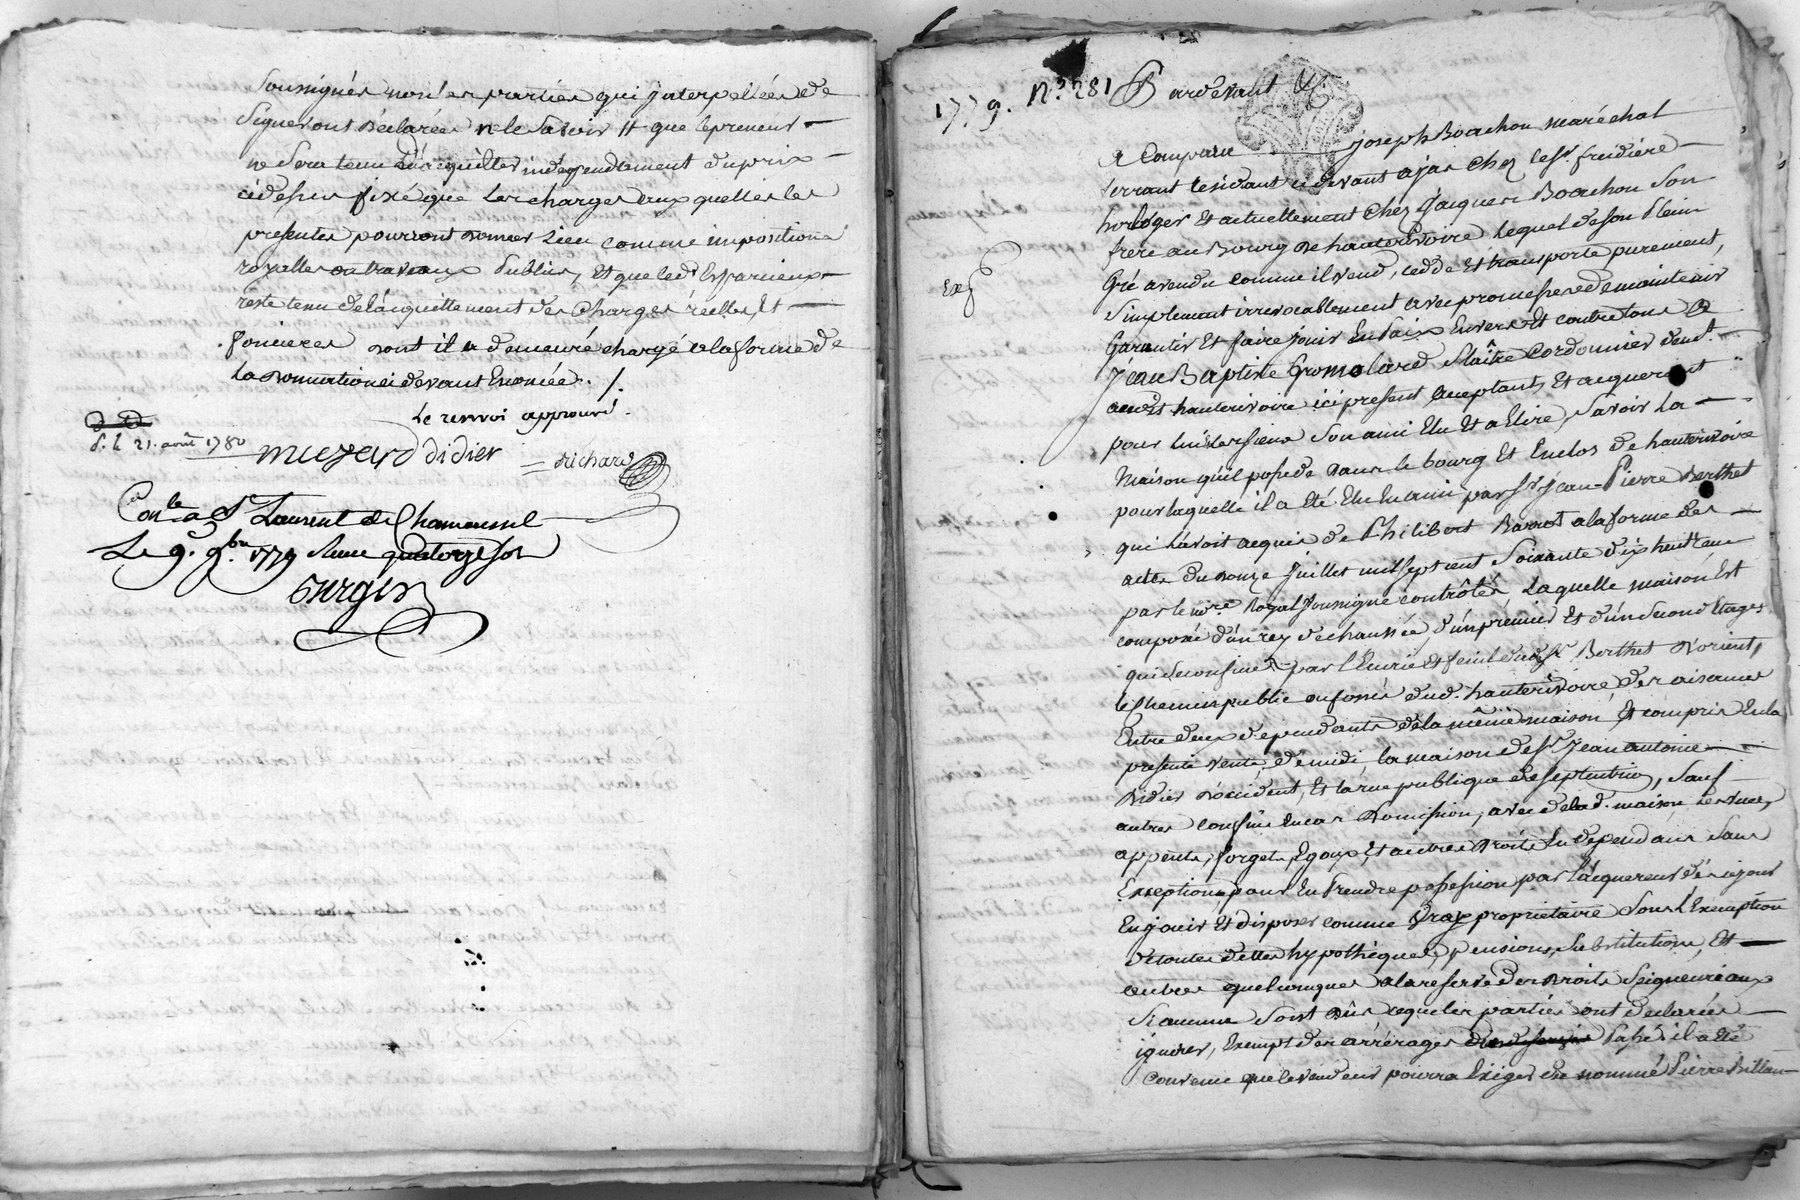 soussignés non les parties qui interpellées de
signer ont déclarées ne le savoir // que le preneur
ne sera tenu d'acquitter indépendemment du prix
cidessus fixé que les charges auxquelles les
presentes pourront donner lieu comme impositions
royalles ou travaux publics, et que led.
reste tenu de lacquittement des charges réelles, et
foncieres dont il a demeuré chargé a la forme de
la donnation cidevant énoncée. /.
Le renvoi approuvé.
d. l. 21. août 1780
didier richard
Con.le a St Laurent de Chamousset
Le 9. 9bre 1779 Reçu quatorze sols
1779. N.o 281 Pardevant
A Comparu Joseph Boachon maréchal
ferrant residant cidevant a jas chez le Sr. freidiere
horloger et actuellement chez Jacques Boachon son
frere au Bourg de hauterivoire lequel de son plein
Exp
Gré a vendu comme il vend, cedde et transporte purement,
simplement irrevocablement avec promesses de maintenir
Garantir et faire jouir en paix envers et contre tous a
Jean Baptiste Gromolard Maître Cordonnier demt.
aud. hauterivoire ici present, acceptant, et acquerant
pour lui les siens son ami elu et a elire, savoir la
maison qu'il possede dans le bourg et enclos de hauterivoire
pour laquelle il a été elu en ami par Sr. jean-Pierre Berthet
qui l'avoit acquis de Philibert Barrot a la forme des
actes du douze juillet mil sept cent soixante dix huit reçu
par le nore. Royal soussigné contrôlés, laquelle maison est
composée d'un rez de chaussée, d'un premier et d'un second etages
qui se confine par l'Ecurie et fenil dud. Sr. Berthet d'orient,
le chemin public ou fossés dud. hauterivoire des aisances
entre deux dépendants de la même maison, et compris en la
presente vente, de midi, la maison de Sr. Jean antoine
didier d'occident, et la rue publique de septentrion, sauf
autres confins en cas d'omission, avec de lad. maison les vues,
appents, forgets, egoux, et autres droits en dépendans sans
Exception pour en prendre possession par l'acquereur dès ce jour
En jouir et disposer comme vray propriétaire sous l'exemption
de toutes dettes hypothèques, pensions, substitutions, et
autres quelconques a la reserve des droits seigneuriaux
si aucuns sont dûs ce que les parties ont déclarées
ignorer, exempt des arrérages du passé; il a été
convenu que le vendeur pourra exiger du nommé Pierre